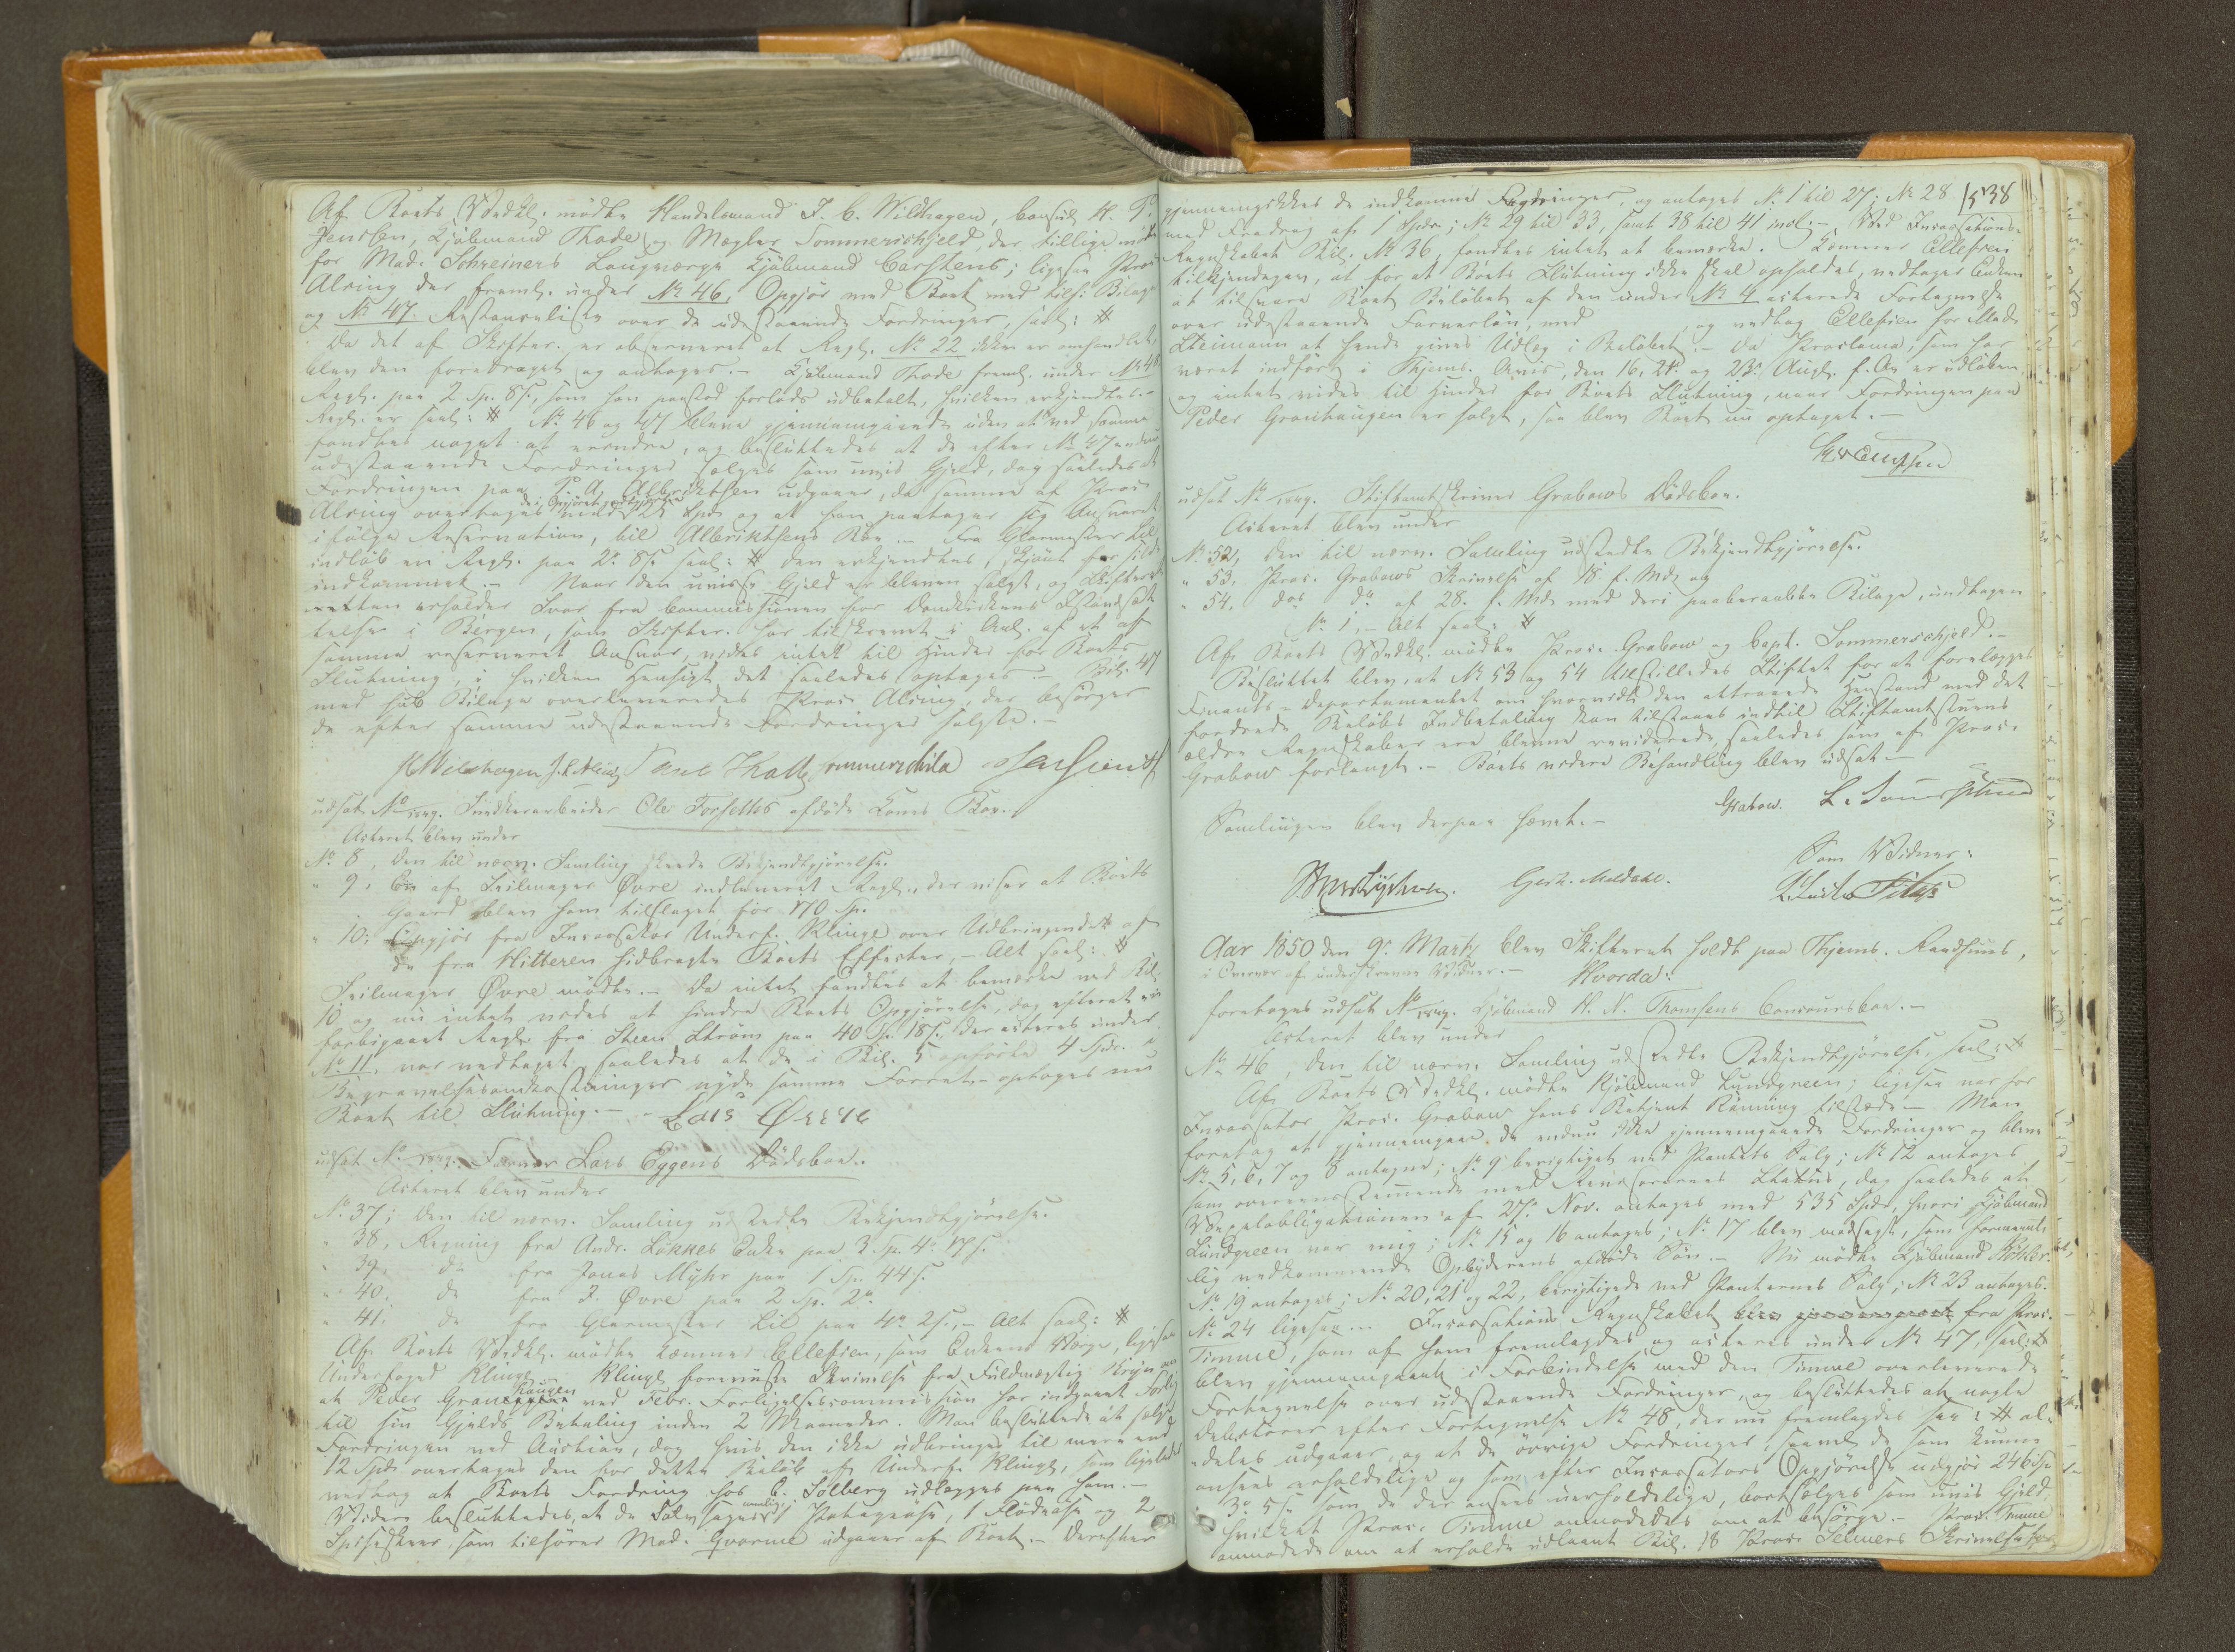 Af Boets Vedkl. mødte Handelsmand J. C. Wildhagen, Consul H. P.
Jenssen, Kjøbmand Thode og Mægler Sommerschjeld, der tillige mødte
for Mad. Schreiners Laugværge Kjøbmand Carstens; ligesaa Proc.
Alsing der freml. under No 46, Opgjør med Boet med tilh. Bilage
og No 47. Restanceliste over de udestaaende Fordringer, saal: #
Da det af Skifter. er observeret at Regl. No 22 ikke er omhandlet,
blev den foretaget og antoges. - Kjøbmand Thode freml. under No 48
Regl. paa 2 Sp. 8 s., som han paastod forlods udbetalt, hvilken erkjendtes. -
Regl. er saal: # No 46 og 47 bleve gjennemgaaede uden at ved samme
fandtes noget at erindre, og besluttedes at de efter No 47 endnu
udestaaende Fordringer sælges som uvis Gjeld, dog saaledes at
Fordringen paa P. A. Albriktsen udgaaer, da samme af Proc.
Alsing overtages med de i Opgjøret 25 Spd. og at han paatager sig Ansvaret
ifølge Reservation, til Albriktsens Boe. - Fra Glarmester Lil
indløb en Regl. paa 2 8 s. saal: # den erkjendtes, skjønt for sildig
indkommet. - Naar den uvisse Gjeld er bleven solgt, og Skifte-
retten erholder Svar fra Commissionen for Domkirkens Istandsæt-
telse i Bergen, som Skifter. har tilskrevet i Anl. af et af
samme reserveret Ansvar, vides intet til Hinder for Boets
Slutning, i hvilken Hensigt det saaledes optages. - Bil. 47
med sub Bilage overleveredes Proc. Alsing, der besørger
de efter samme udestaaende Fordringer solgte. -
Wildhagen J. L. Alsing Thode Sommerschild Jenssen
udsat No 1849. Snedkerarbeider Ole Forsethes afdøde Kones Boe.
Acteret blev under
No 8, den til nærv. Samling skeede Bekjendtgjørelse.
" 9, En af Seilmager Øvre indleveret Regl., der viser at Boets
Gaard blev ham tilslaget for 170 Sp.
" 10, Opgjør fra Incassator Underf. Klinge over Udbringendet af
de fra Hitteren hidbragte Boets Effecter, - Alt saal: #
Seilmager Øvre mødte. - Da intet fandtes at bemærke ved Bil.
10 og nu intet vides at hindre Boets Opgjørelse, dog efterat en
forbigaaet Regl. fra Steen Strøm paa 40 Sp. 18 s., der acteres under
No 11, var vedtaget saaledes at de i Bil. 5 opførte 4 Spd. i
Begravelsesomkostninger nyde samme Forret - optoges nu
Boet til Slutning. - Lars Øvere
udsat No 1849. Farver Lars Eggens Dødsboe.
Acteret blev under
No 37, den til nærv. Samling udstedte Bekjendtgjørelse.
" 38, Regning fra Andr. Løkkes Enke paa 3 Sp. 4 17 s.
" 39, do fra Jonas Myhr paa 1 Sp. 44 s.
" 40, do fra L. Øvre paa 2 Sp. 2
" 41, do fra Glarmester Lil paa 4 2 s., - Alt saal: #
Af Boets Vedkl. mødte Kæmner Ellefsen, som Enkens Værge, ligesaa
Underfoged Klinge. Klinge foreviiste Skrivelse fra Fuldmægtig
at Peder Granhaugen ved Febr. Forligelsescommission har indgaaet Forlig
til sin Gjelds Betaling inden 2 Maaneder. Man besluttede at sælge
Fordringen ved Auction, dog hvis den ikke udbringes til mere end
12 Spd. overtages den for dette Beløb af Underf. Klinge, som ligeledes
vedtog at Boets Fordring hos C. Solberg udlægges paa ham. -
Videre besluttedes, at de Sølvsager nemlig: 1 Potageøse, 1 Flødeøse og 2
Spiseskeer, som tilhører Mad. Gvarme udgaaer af Boet. - Derefter
gjennemgikkes de indkomne Fordringer, og antoges No 1 til 27; No 28 538
med Fradrag af 1 Spd.; No 29 til 33, samt 38 til 41 incl. - Ved Incassations-
Regnskabet Bil. No 36, fandtes intet at bemærke. Kæmner Ellefsen
tilkjendegav, at for at Boets Slutning ikke skal opholdes, vedtager Enken
at tilsvare Boet Beløbet af den under No 4 acterede Fortegnelse
over udestaaende Farverløn, med , og vedtog Ellefsen for Mad.
Steimann at hende gives Udlæg i Beløbet. - Da Proclama, som har
været indført i Thjems. Avis, den 16, 21 og 23 Augt. f. A. er udløben,
og intet vides til Hinder for Boets Slutning, naar Fordringen paa
Peder Granhaugen er solgt, saa blev Boet nu optaget. -
udsat No 1849. Stiftamtskriver Grabows Dødsboe.
Acteret blev under
No 52, den til nærv. Samling udstedte Bekjendtgjørelse.
" 53, Proc. Grabows Skrivelse af 18 f. Md. og
" 54, dos do af 28. f. Md. med deri paaberaabte Bilage, undtagen
No 1, - Alt saal: #
Af Boets Vedkl. mødte Proc. Grabow og Capt. Sommerschjeld. -
Besluttet blev, at No 53 og 54 tilstilledes Stiftet for at forelægges
Finants-Departementet om hvorvidt den attraaede Henstand med det
fordrede Beløbs Indbetaling kan tilstaaes indtil Stiftamtstuens
ældre Regnskaber ere blevne reviderede, saaledes som af Proc.
Grabow forlangt. - Boets videre Behandling blev udsat. -
Grabow. L. Sommerschield
Samlingen blev derpaa hævet. -
Som Vidner:
Gerh. Moldahl.
Aar 1850 den 9 Marts blev Skifteret holdt paa Thjems. Raadhuus,
i Overvær af underskrevne Vidner. - Hvorda:
foretoges udsat No 1849. Kjøbmand H. N. Thomsens Concursboe. -
Acteret blev under
No 46, den til nærv. Samling udstedte Bekjendtgjørelse, saal: #
Af Boets Vedkl. mødte Kjøbmand Lundgreen; ligesaa var for
Incassator Proc. Grabow hans Betjent Rønning tilstede. - Man
foretog at gjennemgaae de endnu ikke gjennemgaaede Fordringer og bleve
No 5, 6, 7 og 8 antagne; No 9 berigtiget ved Pantets Salg; No 12 antoges
som overeensstemmende med Revisorernes Status, dog saaledes at
Vexelobligationen af 27 Nov. antages med 535 Spd., hvori Kjøbmand
Lundgreen var enig; No 15 og 16 antoges; No 17 blev modsagt, som formeent-
lig vedkommende Opbyderens afdøde Søn. - Nu mødte Kjøbmand Møhler.
No 19 antoges; No 20, 21 og 22, berigtigede ved Panternes Salg; No 23 antoges.
No 24 ligesaa. - Incassations Regnskabet fra Proc.
Timme, som af ham fremlagdes og acteres under No 47, saal: #
blev gjennemgaaet i Forbindelse med den Timme overleverede
Fortegnelse over udestaaende Fordringer, og besluttedes at nogle
Debitorer efter Fortegnelse No 48, der nu fremlagdes saa: # al-
deles udgaaer, og at de øvrige Fordringer, saavel de som kunne
ansees erholdelige og som efter Incassators Opgjørelse udgjør 246 Sp.
3 5 s. som de der ansees uerholdelige, bortsælges som uvis Gjeld,
hvilket Proc. Timme anmodedes om at besørge. - Proc. Timme
anmodede om at erholde udlaant Bil. 18 Proc. Selmers Skrivelse